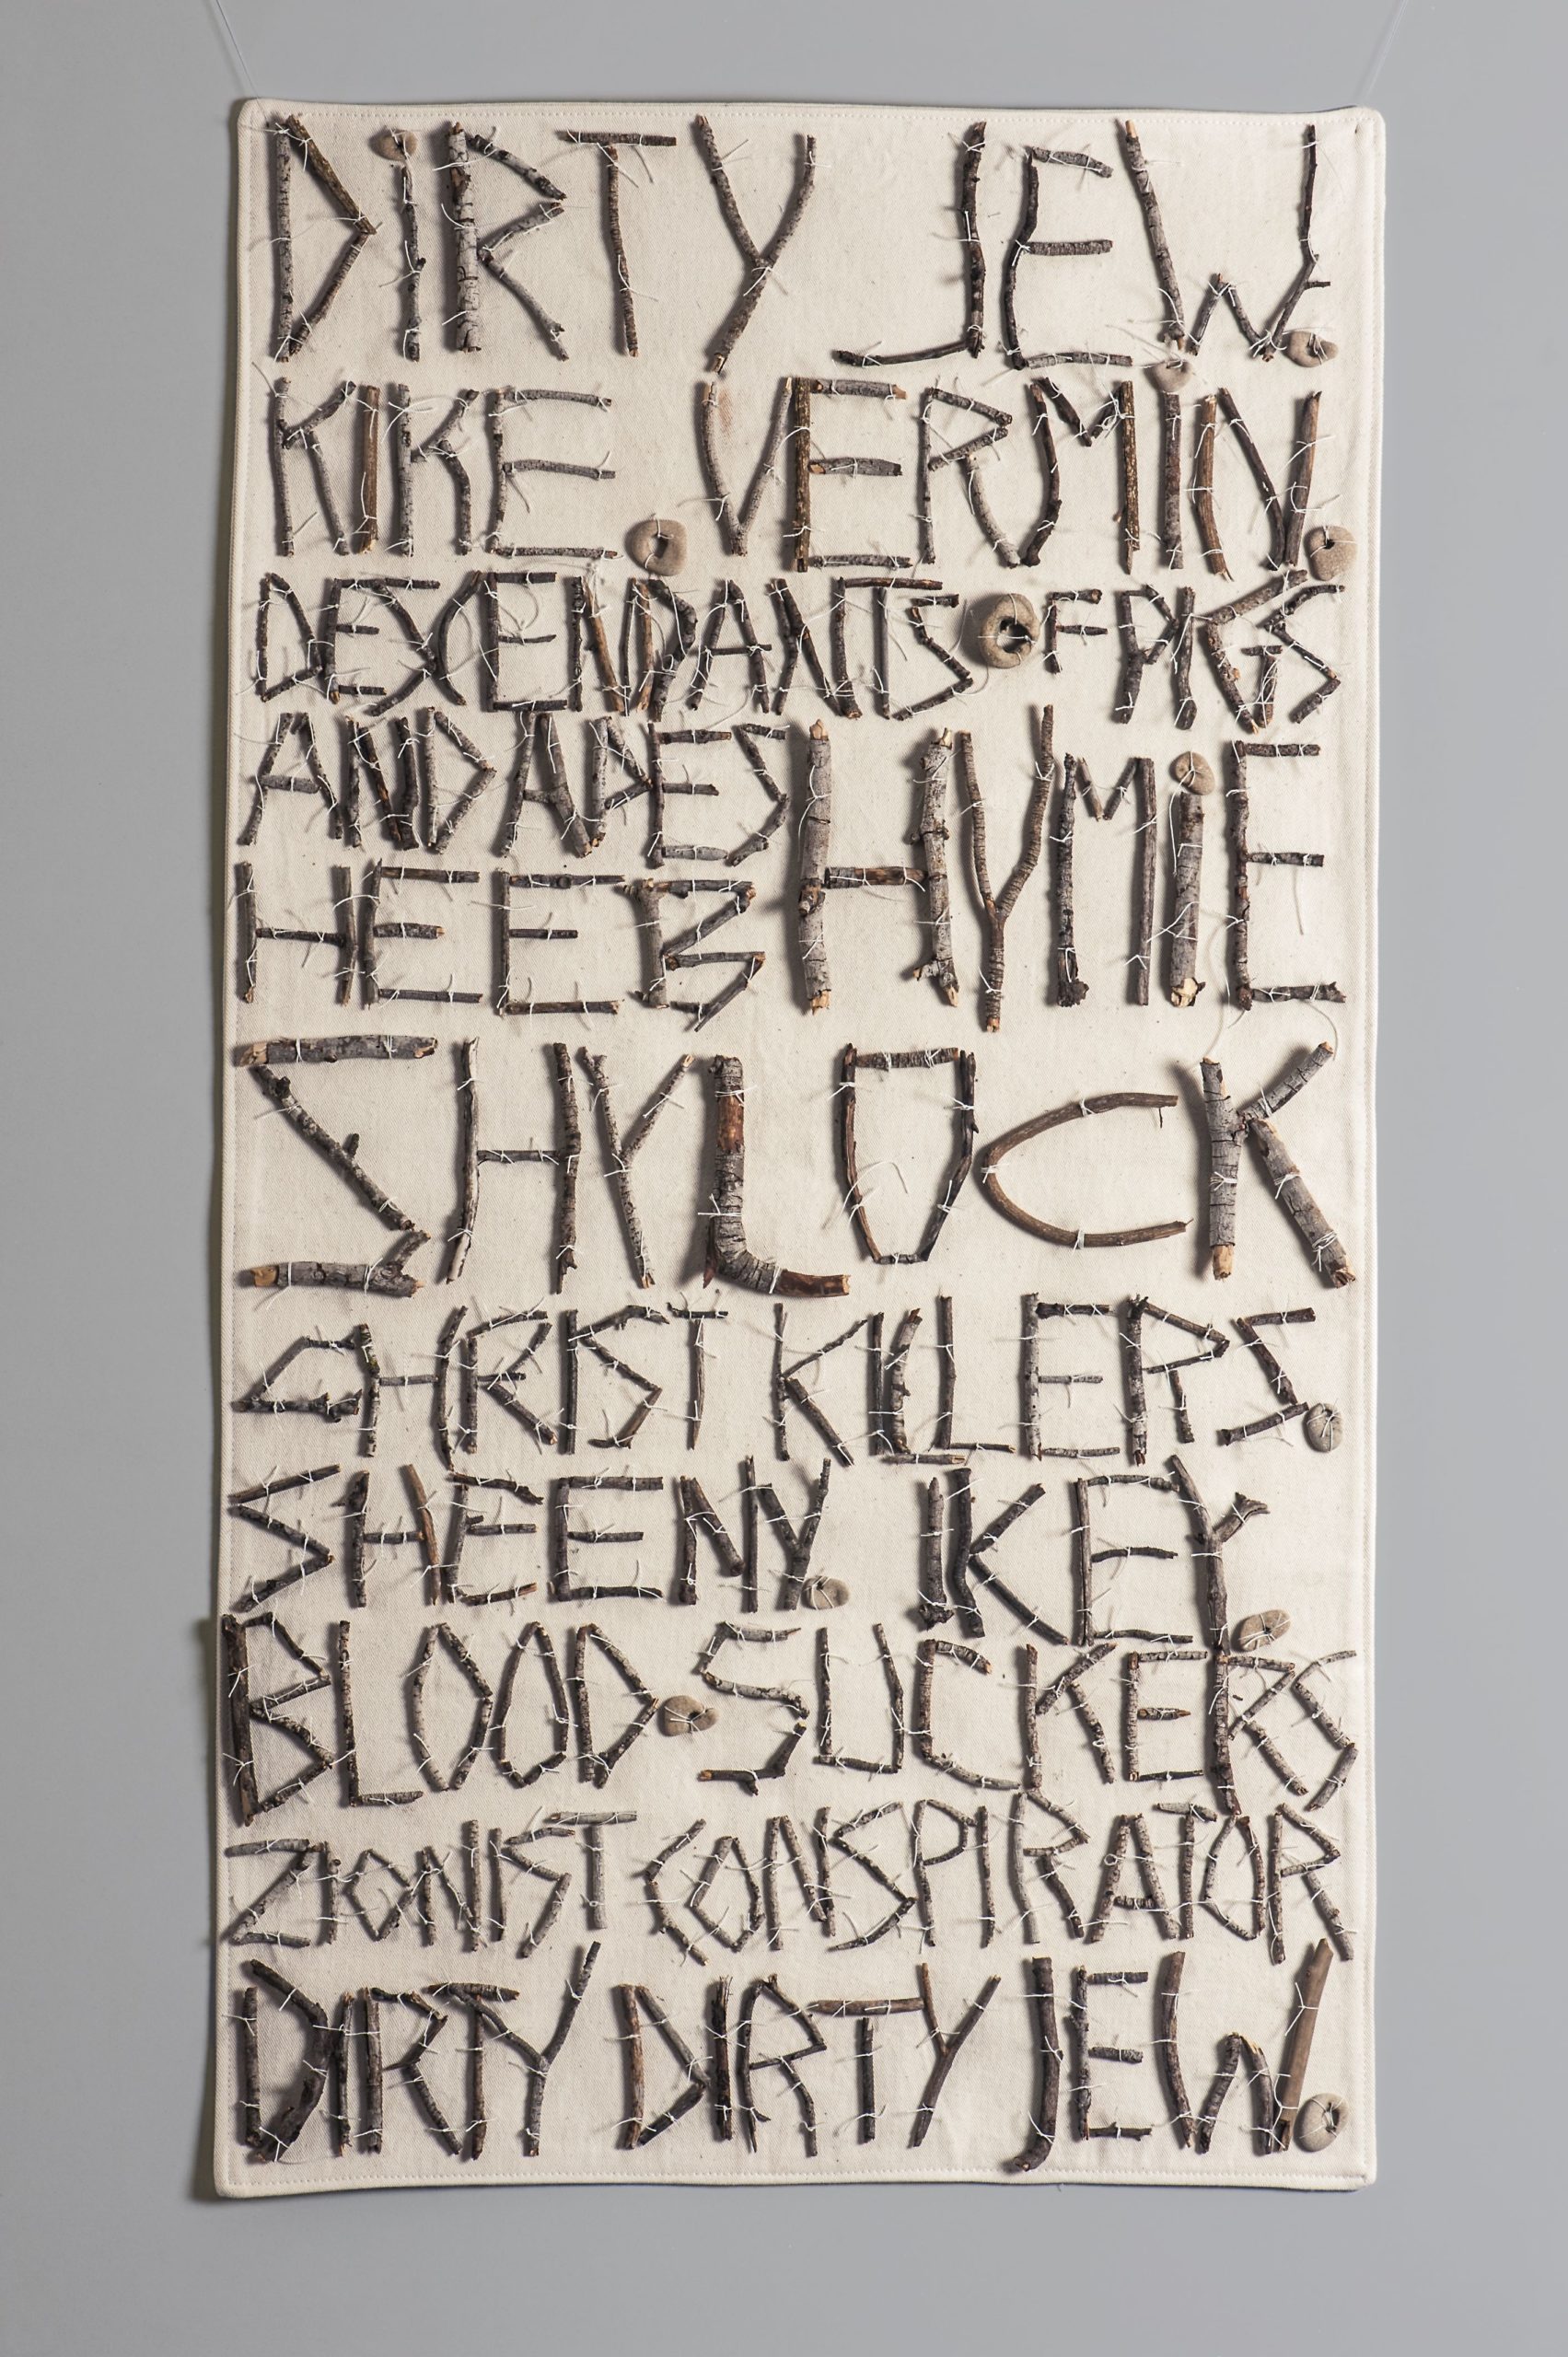 DIRTY JEW.
KIKE. VERMIN.
DESCENDANTS OF PIGS
AND APES
HYMIE
HEEB
SHYLOCK
CHRIST KILLERS.
SHEENY. IKEY.
BLOOD-SUCKERS
ZIONIST CONSPIRATOR
DIRTY DIRTY JEW.